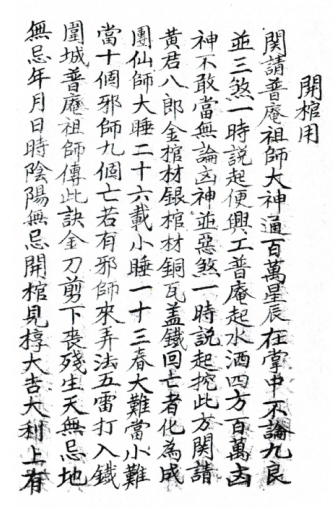 開棺用
関請普庵祖師大神通百萬星辰在掌中不論九良
並三煞一時説起便興工普庵起水洒四方百萬凶
神不敢當無論凶神並惡煞一時説起挖此方関請
黃君八郎金棺材銀棺材銅瓦盖鐵回亡者化為成
團仙師大睡二十六載小睡一十三春大難當小難
當十個邪師九個亡若有邪師來弄法五雷打入鐵
圍城普庵祖師傳此訣金刀剪下喪殘生天無忌地
無忌年月日時陰陽無忌開棺見椁大吉大利上有